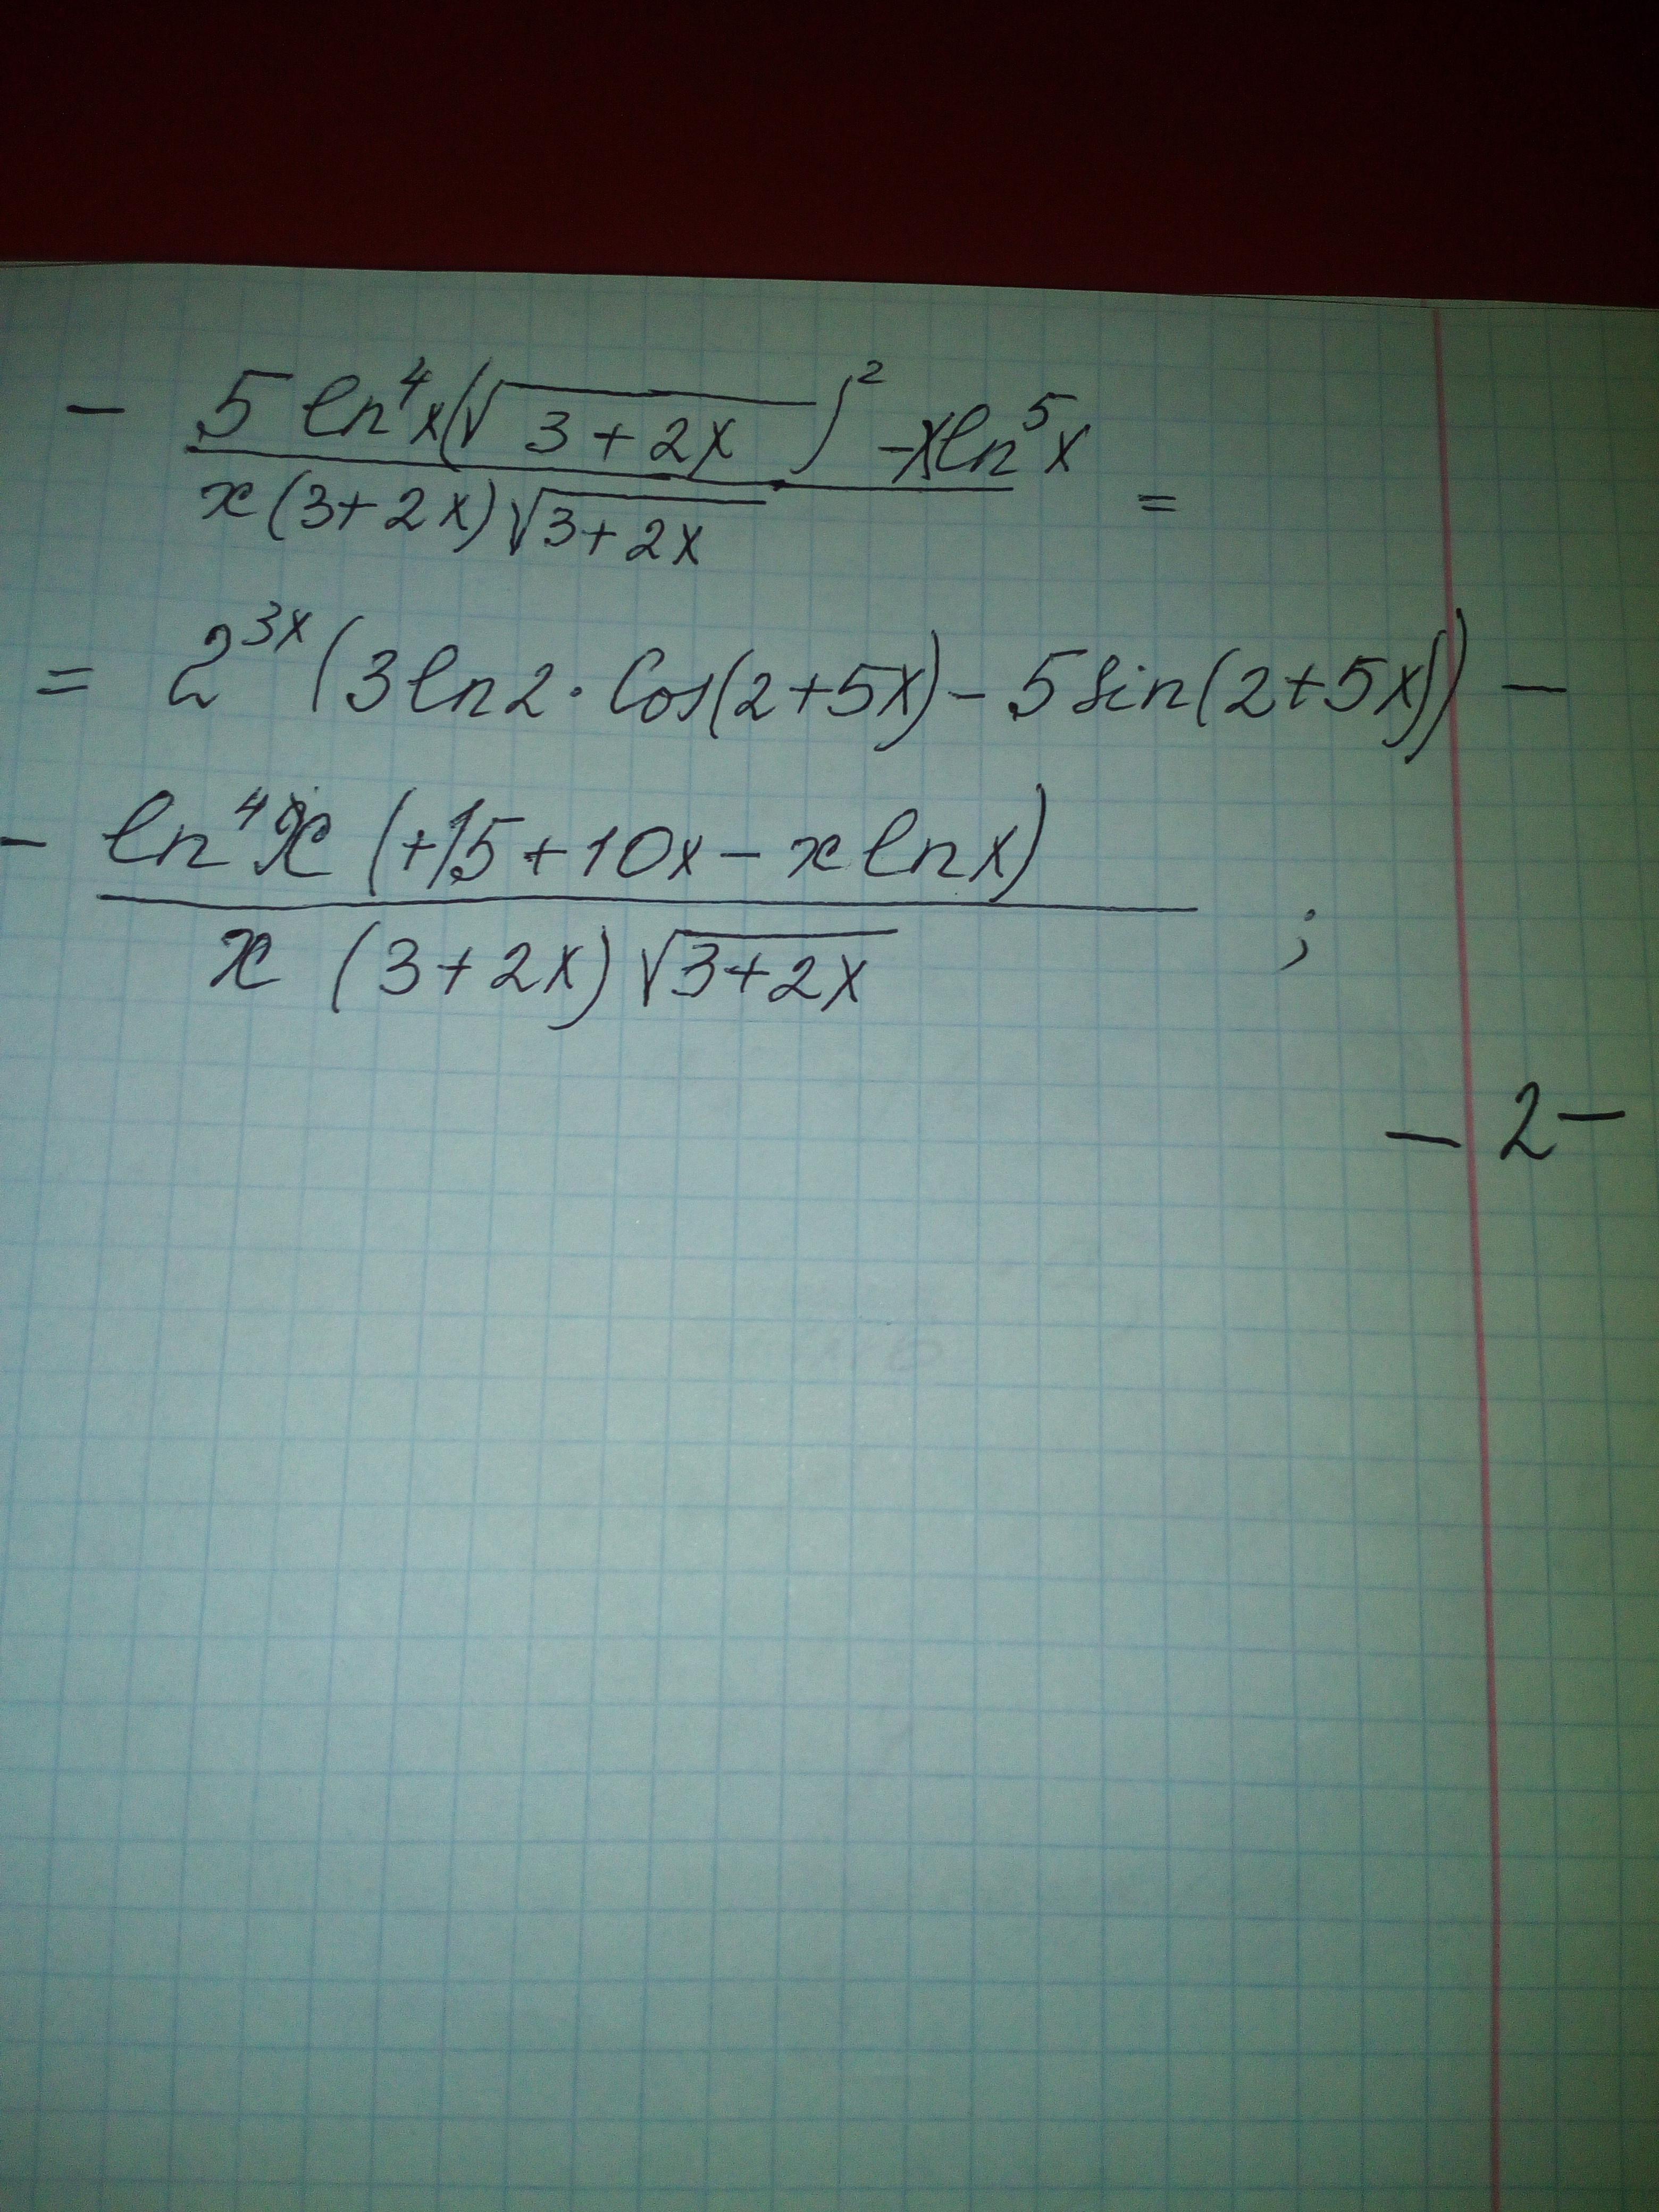 - \frac{5 ln^4 x(\sqrt{3+2x})^2 - x ln^5 x}{x(3+2x)\sqrt{3+2x}} =
= 2^{3x}(3 ln 2 · Cos(2+5x) - 5 sin(2+5x)) -
- \frac{ln^4 x (+15+10x - x ln x)}{x (3+2x)\sqrt{3+2x}} ;
- 2 -